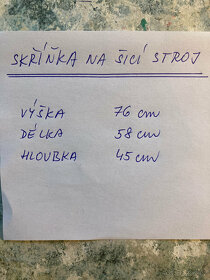 SKŘÍŇKA NA ŠICÍ STROJ
VÝŠKA 76 cm
DÉLKA 58 cm
HLOUBKA 45 cm